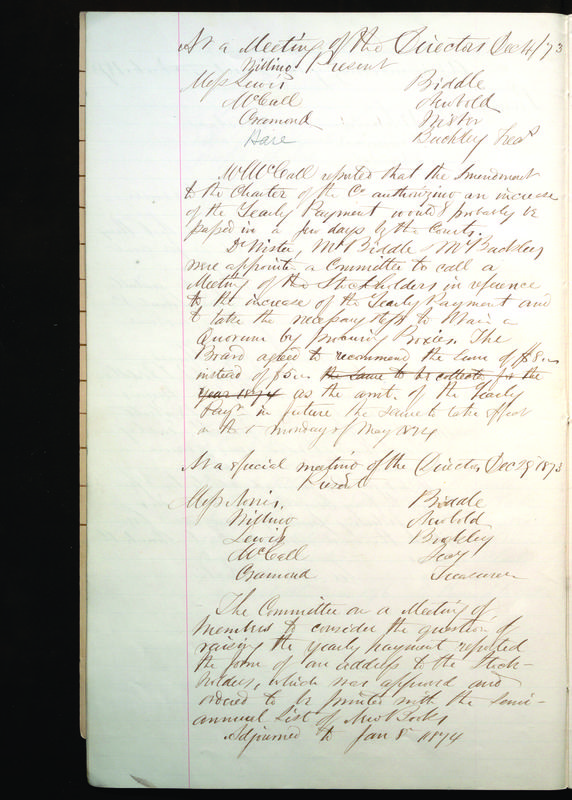 At a Meeting of the Directors Dec 4/73
Present
Mess Lewis Biddle
McCall Newbold
Cramond Wister
Hare Buckley Treas
Mr McCall reported that the Amendment
to the Charter of the Co authorizing an increase
of the Yearly Payment would probably be
passed in a few days by the Court.
Dr Wister, Mr Biddle & Mr Buckley
were appointed a Committee to call a
Meeting of the Stockholders in reference
to the increase of the Yearly Payment and
to take the necessary steps to obtain a
Quorum by Proxies. The
Board agreed to recommend the sum of $8
instead of $5 the same to be collected for the
year 1874 as the amt. of the Yearly
Paymt in future the same to take effect
on the 1 Monday of May 1874
At a special meeting of the Directors Dec 29 1873
Present
Mess Norris, Biddle
Newbold
Lewis Buckley
McCall Secy
Cramond Treasurer
The Committee on a Meeting of
Members to consider the question of
raising the yearly payment reported
the form of an address to the Stock-
holders, which was approved and
ordered to be printed with the Semi-
annual List of New Books
Adjourned to Jan 8 1874